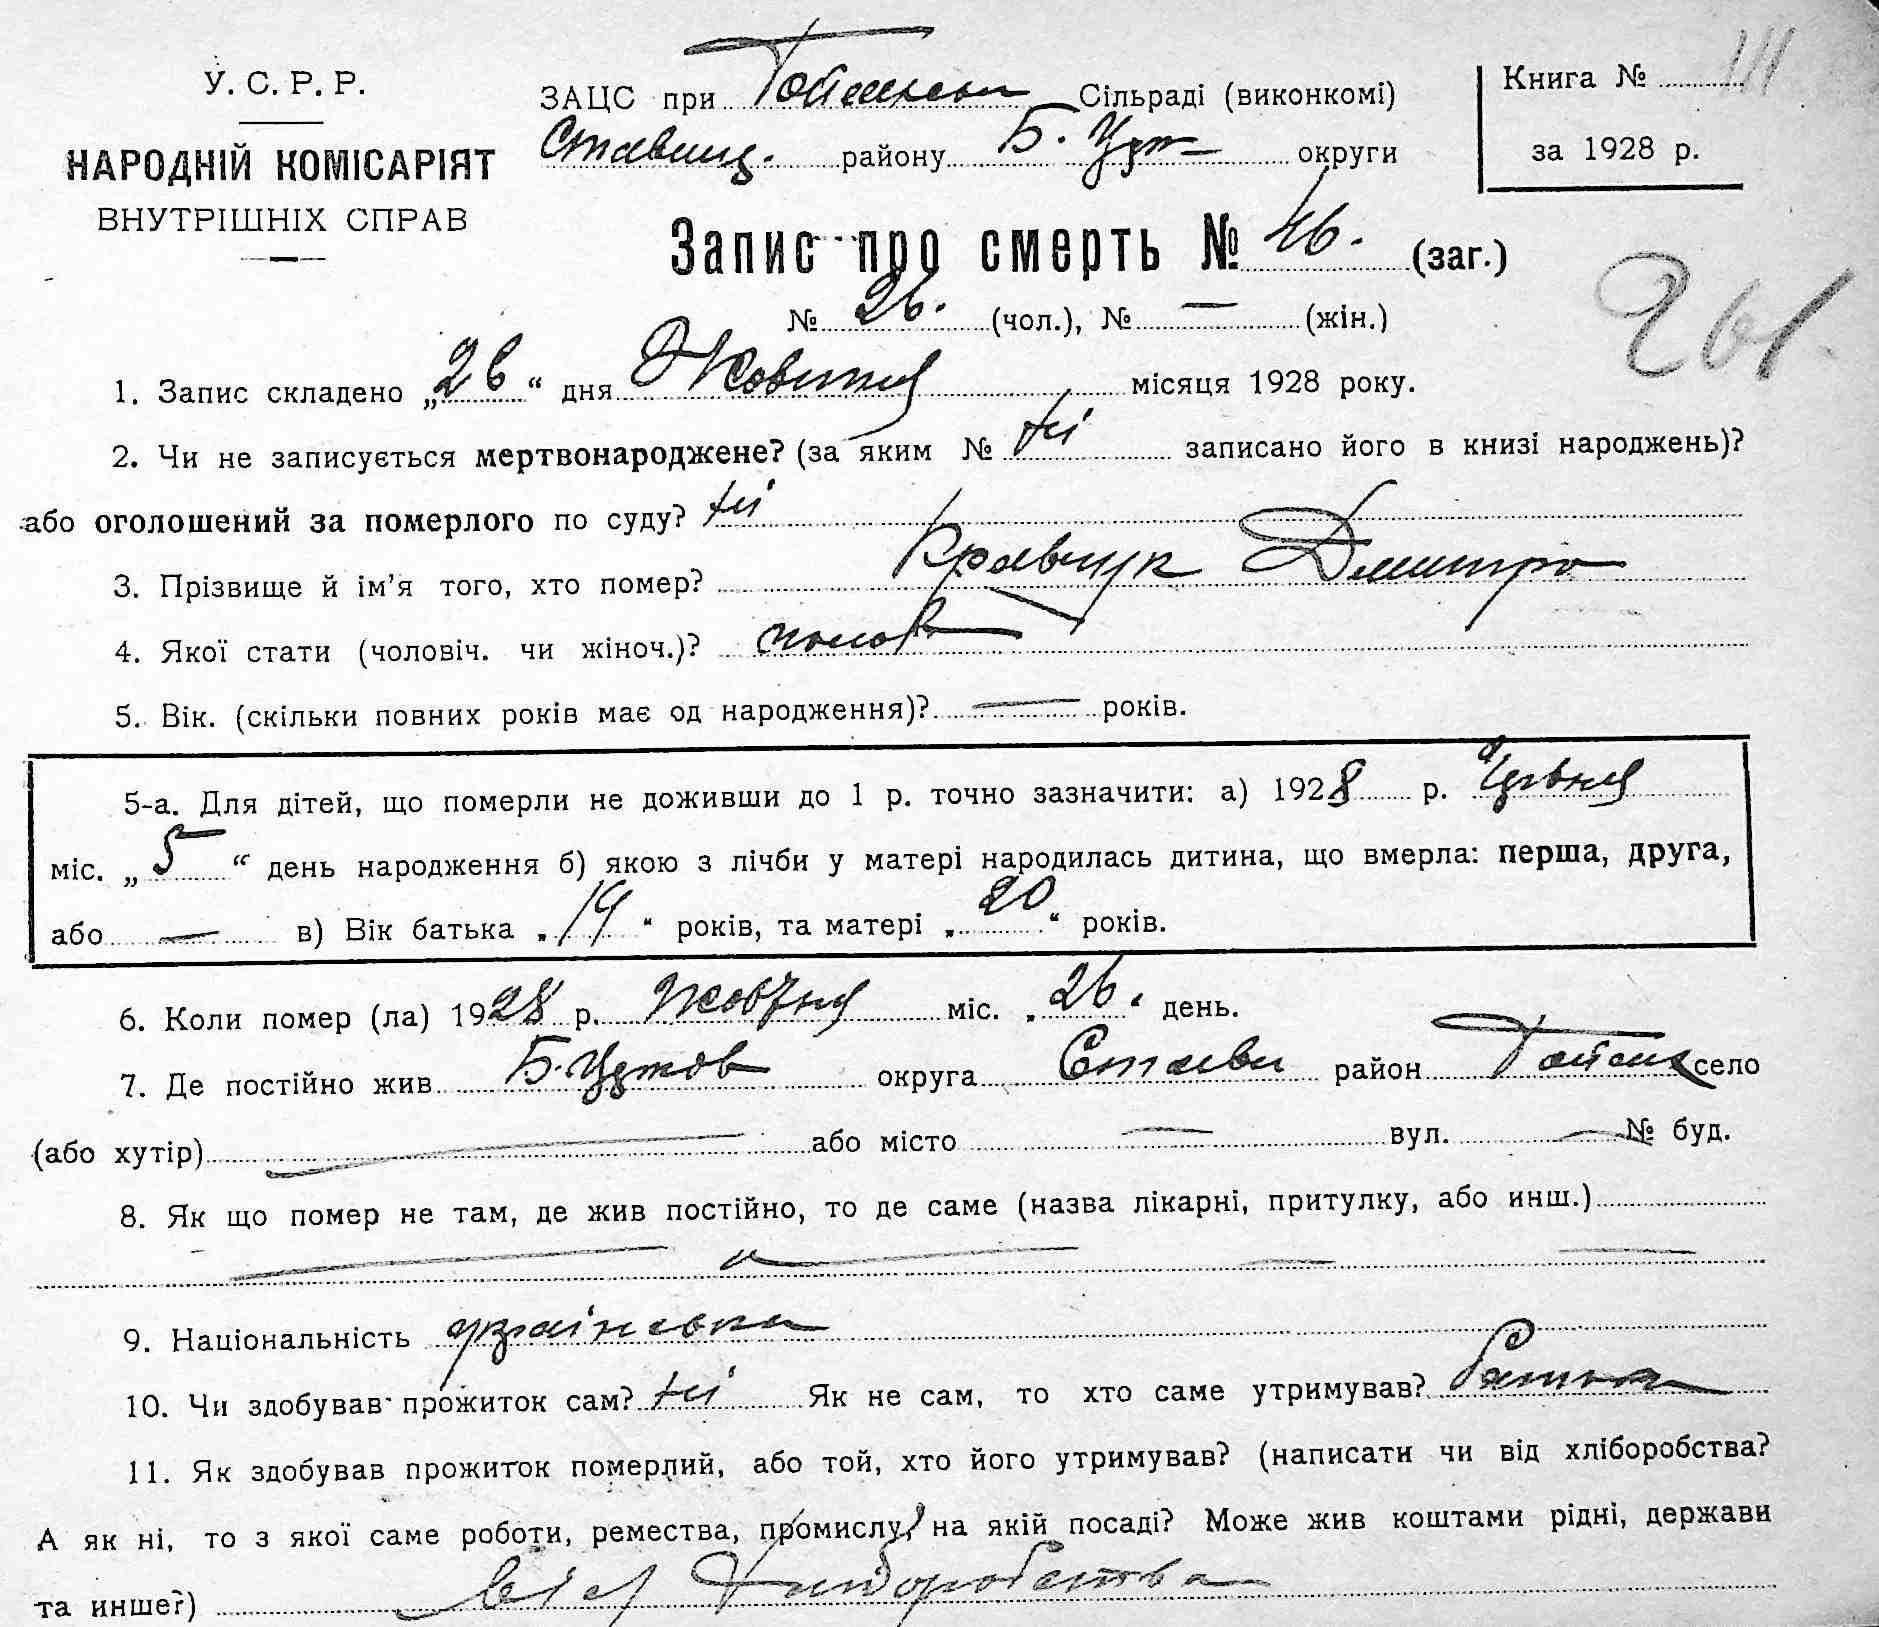 У. С. Р. Р.
НАРОДНІЙ КОМІСАРІЯТ
ВНУТРІШНІХ СПРАВ
ЗАЦС при Сільраді (виконкомі)
Ставищ. району Б. Црк округи
Книга №
за 1928 р.
Запис про смерть № 46. (заг.)
№ 26. (чол.), № — (жін.)
261
1. Запис складено „26“ дня Жовтня місяця 1928 року.
2. Чи не записується мертвонароджене? (за яким № ні записано його в книзі народжень)?
або оголошений за померлого по суду? ні
3. Прізвище й ім’я того, хто помер? Кравчук Дмитро
4. Якої стати (чоловіч. чи жіноч.)? чолов
5. Вік. (скільки повних років має од народження)? — років.
5-а. Для дітей, що померли не доживши до 1 р. точно зазначити: а) 1928 р.
міс. „5“ день народження б) якою з лічби у матері народилась дитина, що вмерла: перша, друга,
або — в) Вік батька „19“ років, та матері „20“ років.
6. Коли помер (ла) 1928 р. Жовтня міс. „26.“ день.
7. Де постійно жив Б. Церков округа Стави район село
(або хутір) — або місто — вул. — № буд.
8. Як що помер не там, де жив постійно, то де саме (назва лікарні, притулку, або инш.)
9. Національність українська
10. Чи здобував прожиток сам? ні Як не сам, то хто саме утримував? Батько
11. Як здобував прожиток померлий, або той, хто його утримував? (написати чи від хліборобства?
А як ні, то з якої саме роботи, ремества, промислу, на якій посаді? Може жив коштами рідні, держави
та инше?) від Хліборобства